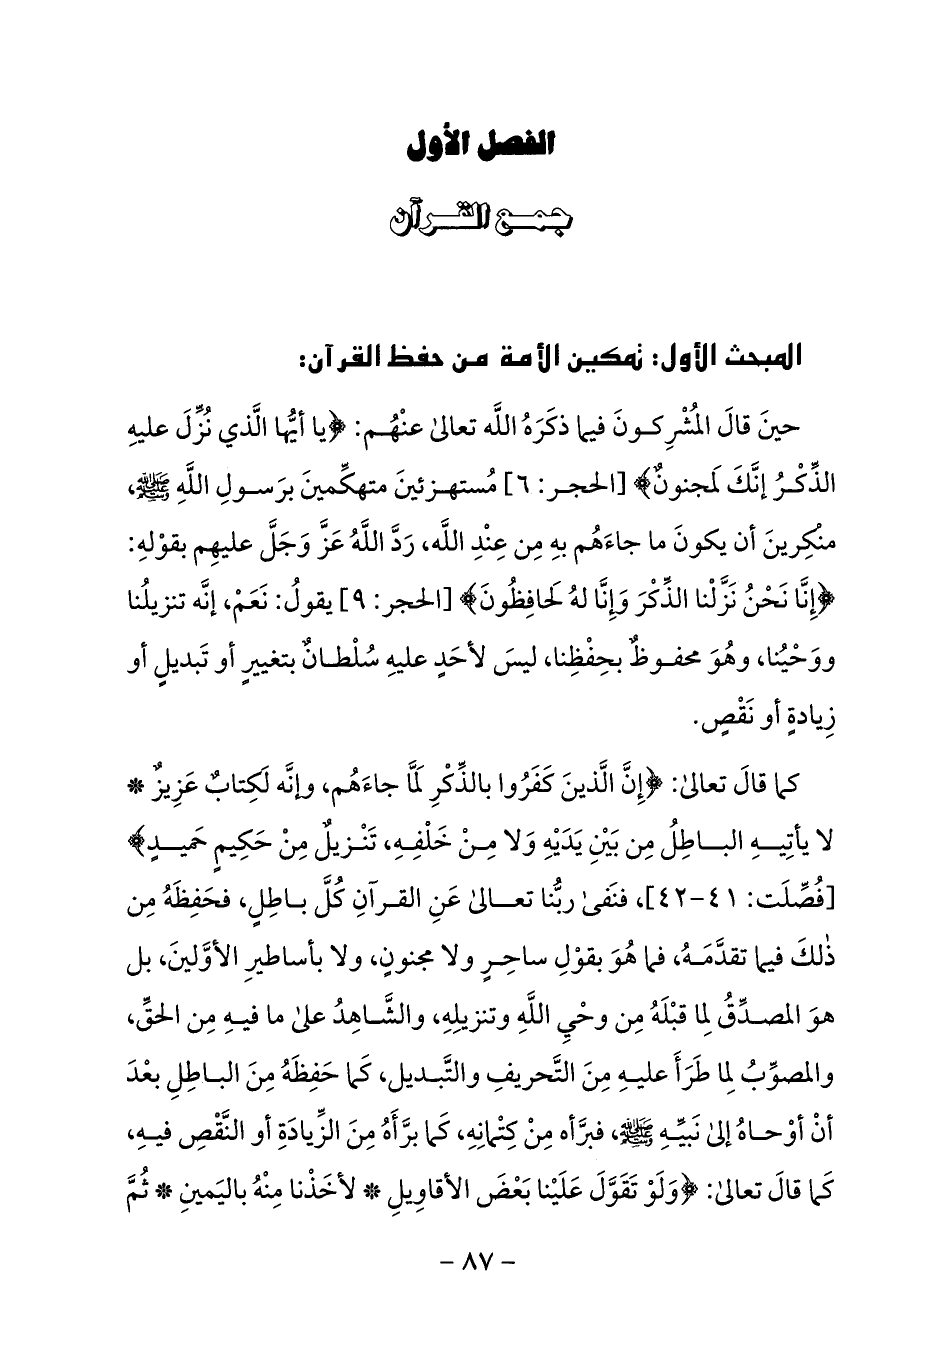 الفصل الأول
جمع القرآن
المبحث الأول: تمكين الأمة من حفظ القرآن:
حينَ قالَ المُشْرِكونَ فيما ذكَرَهُ اللَّه تعالىٰ عنْهُم: ﴿يا أيُّها الَّذي نُزِّلَ عليهِ
الذِّكْرُ إنَّكَ لَمجنونٌ﴾ [الحجر: ٦] مُستهزئينَ متهكِّمينَ برَسولِ اللَّهِ ﷺ،
منْكِرينَ أن يكونَ ما جاءَهُم بهِ مِن عِنْدِ اللَّه، رَدَّ اللَّهُ عَزَّ وَجَلَّ عليهِم بقوْلهِ:
﴿إنَّا نَحْنُ نَزَّلْنا الذِّكْرَ وَإنَّا لهُ لَحافِظُونَ﴾ [الحجر: ٩] يقولُ: نَعَمْ، إنَّه تنزيلُنا
ووَحْيُنا، وهُوَ محفوظٌ بحِفْظِنا، ليسَ لأحَدٍ عليهِ سُلْطانٌ بتغييرٍ أو تَبديلٍ أو
زِيادةٍ أو نَقْصٍ.
كما قالَ تعالىٰ: ﴿إنَّ الَّذينَ كفَرُوا بالذِّكْرِ لَمَّا جاءَهُم، وإنَّه لَكِتابٌ عَزِيزٌ *
لا يأتِيهِ الباطِلُ مِن بَيْنِ يَدَيْهِ وَلا مِنْ خَلْفِهِ، تَنْزيلٌ مِنْ حَكِيمٍ حَميدٍ﴾
[فُصِّلَت: ٤١-٤٢]، فنَفىٰ ربُّنا تعالىٰ عَنِ القرآنِ كُلَّ باطِلٍ، فحَفِظَهُ مِن
ذٰلكَ فيما تقدَّمَهُ، فما هُوَ بقوْلِ ساحِرٍ ولا مجنونٍ، ولا بأساطيرِ الأوَّلينَ، بل
هوَ المصدِّقُ لِما قبْلَهُ مِن وحْيِ اللَّهِ وتنزيلِهِ، والشَّاهِدُ علىٰ ما فيهِ مِن الحقِّ،
والمصوِّبُ لِما طرَأَ عليهِ مِنَ التَّحريفِ والتَّبديل، كَما حَفِظَهُ مِنَ الباطِلِ بعْدَ
أنْ أوْحاهُ إلىٰ نَبيِّهِ ﷺ، فبرَّأه مِنْ كِتْمانِهِ، كَما برَّأَهُ مِنَ الزِّيادَةِ أو النَّقْصِ فيهِ،
كَما قالَ تعالىٰ: ﴿وَلَوْ تَقَوَّلَ عَلَيْنا بَعْضَ الأقاوِيلِ * لأخَذْنا مِنْهُ باليَمينِ * ثُمَّ
- ٨٧ -